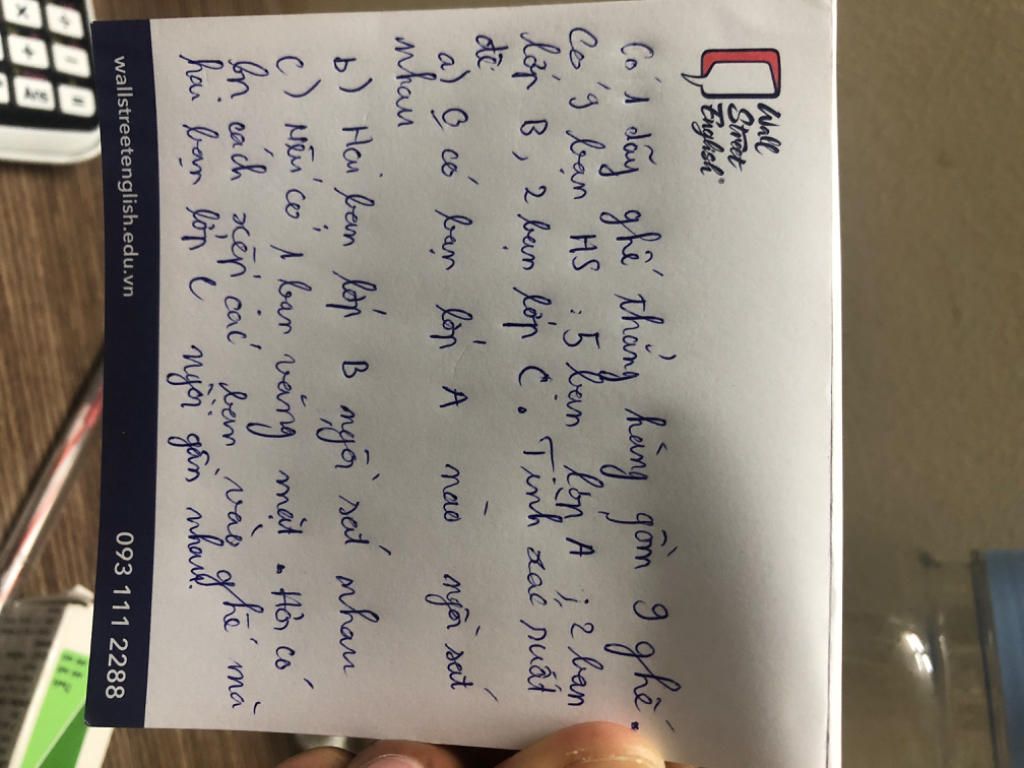 Wall
Street
English
Có 1 dãy ghế thẳng hàng gồm 9 ghế.
Có 9 bạn HS : 5 bạn lớp A ; 2 bạn
lớp B, 2 bạn lớp C. Tính xác suất
để
a) O có bạn lớp A nào ngồi sát
nhau
b) Hai bạn lớp B ngồi sát nhau
c) Nếu có 1 bạn vắng mặt. Hỏi có
bn cách xếp các bạn vào ghế mà
hai bạn lớp C ngồi gần nhau?
wallstreetenglish.edu.vn 093 111 2288